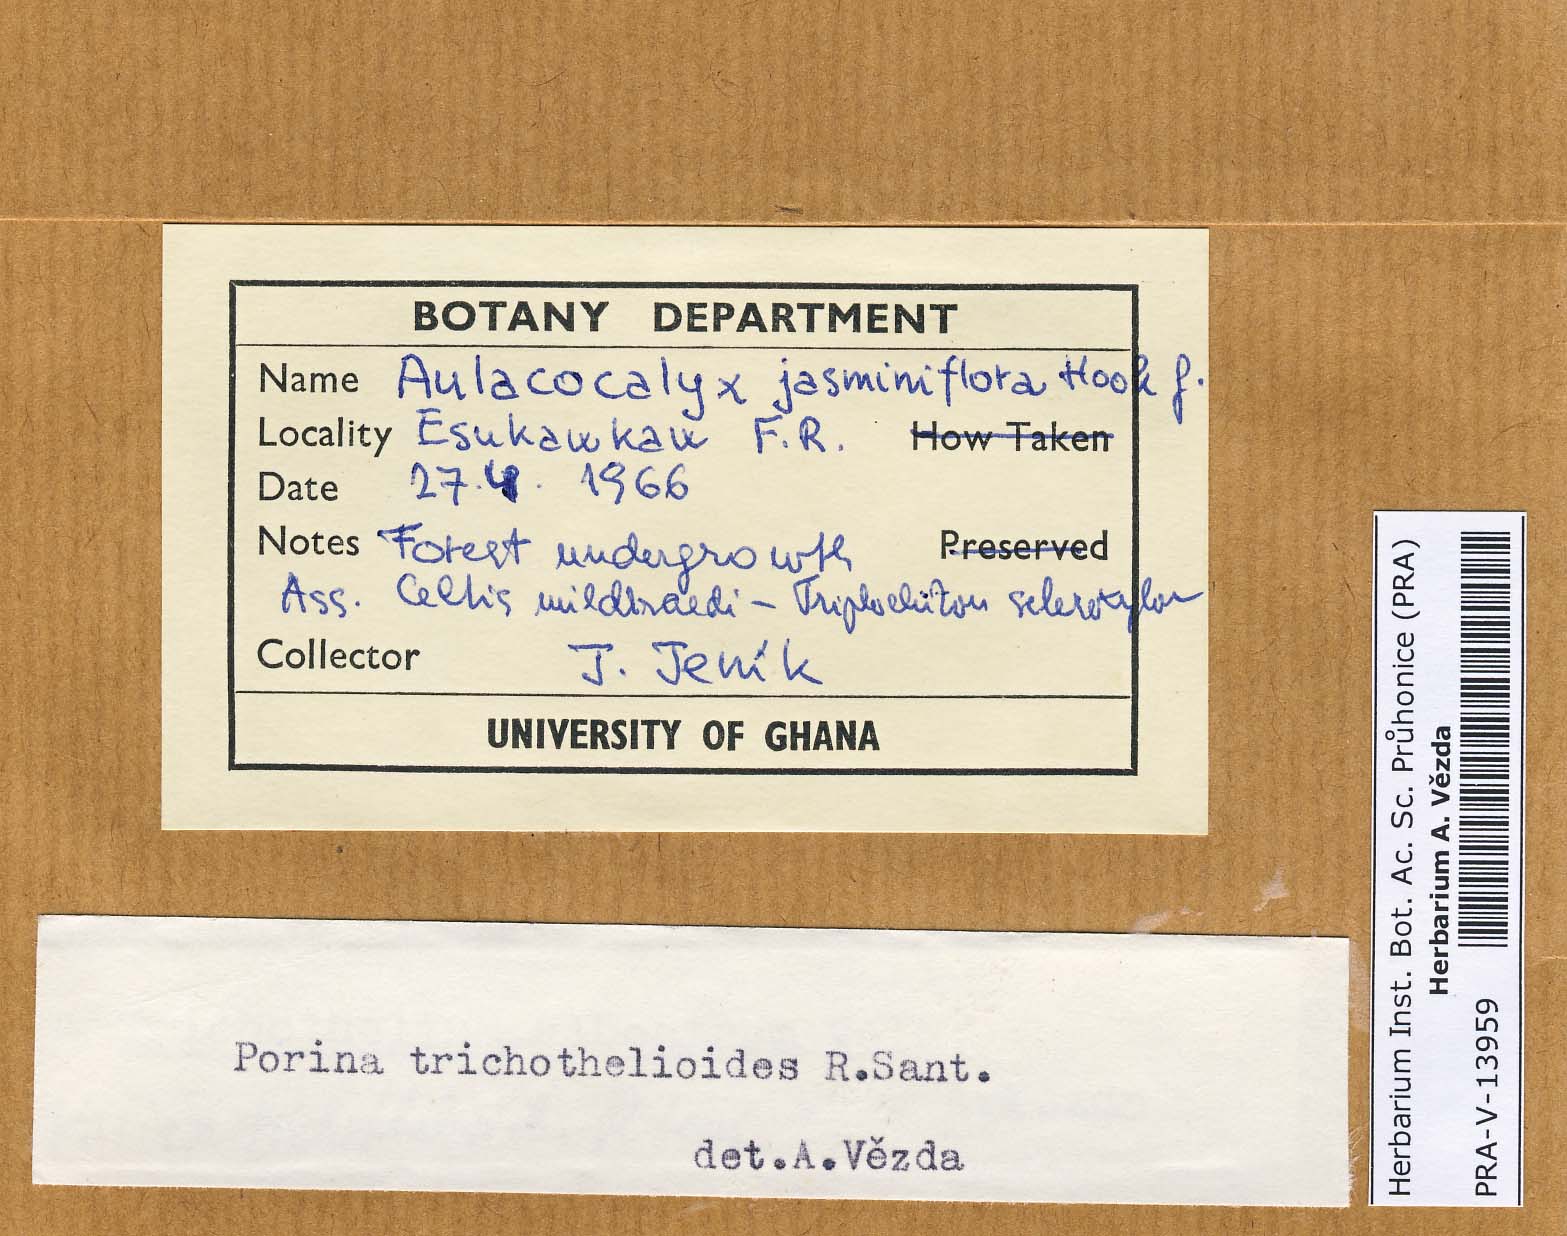 BOTANY DEPARTMENT
Name Aulacocalyx jasminiflora Hook f.
Locality Esukawkaw F.R. How Taken
Date 27.4. 1966
Notes Forest undergrowth Preserved
Ass. Celtis mildbraedi – Triplochiton scleroxylon
Collector J. Jeník
UNIVERSITY OF GHANA
Porina trichothelioides R.Sant.
det.A.Vězda
Herbarium Inst. Bot. Ac. Sc. Průhonice (PRA)
Herbarium A. Vězda
PRA-V-13959